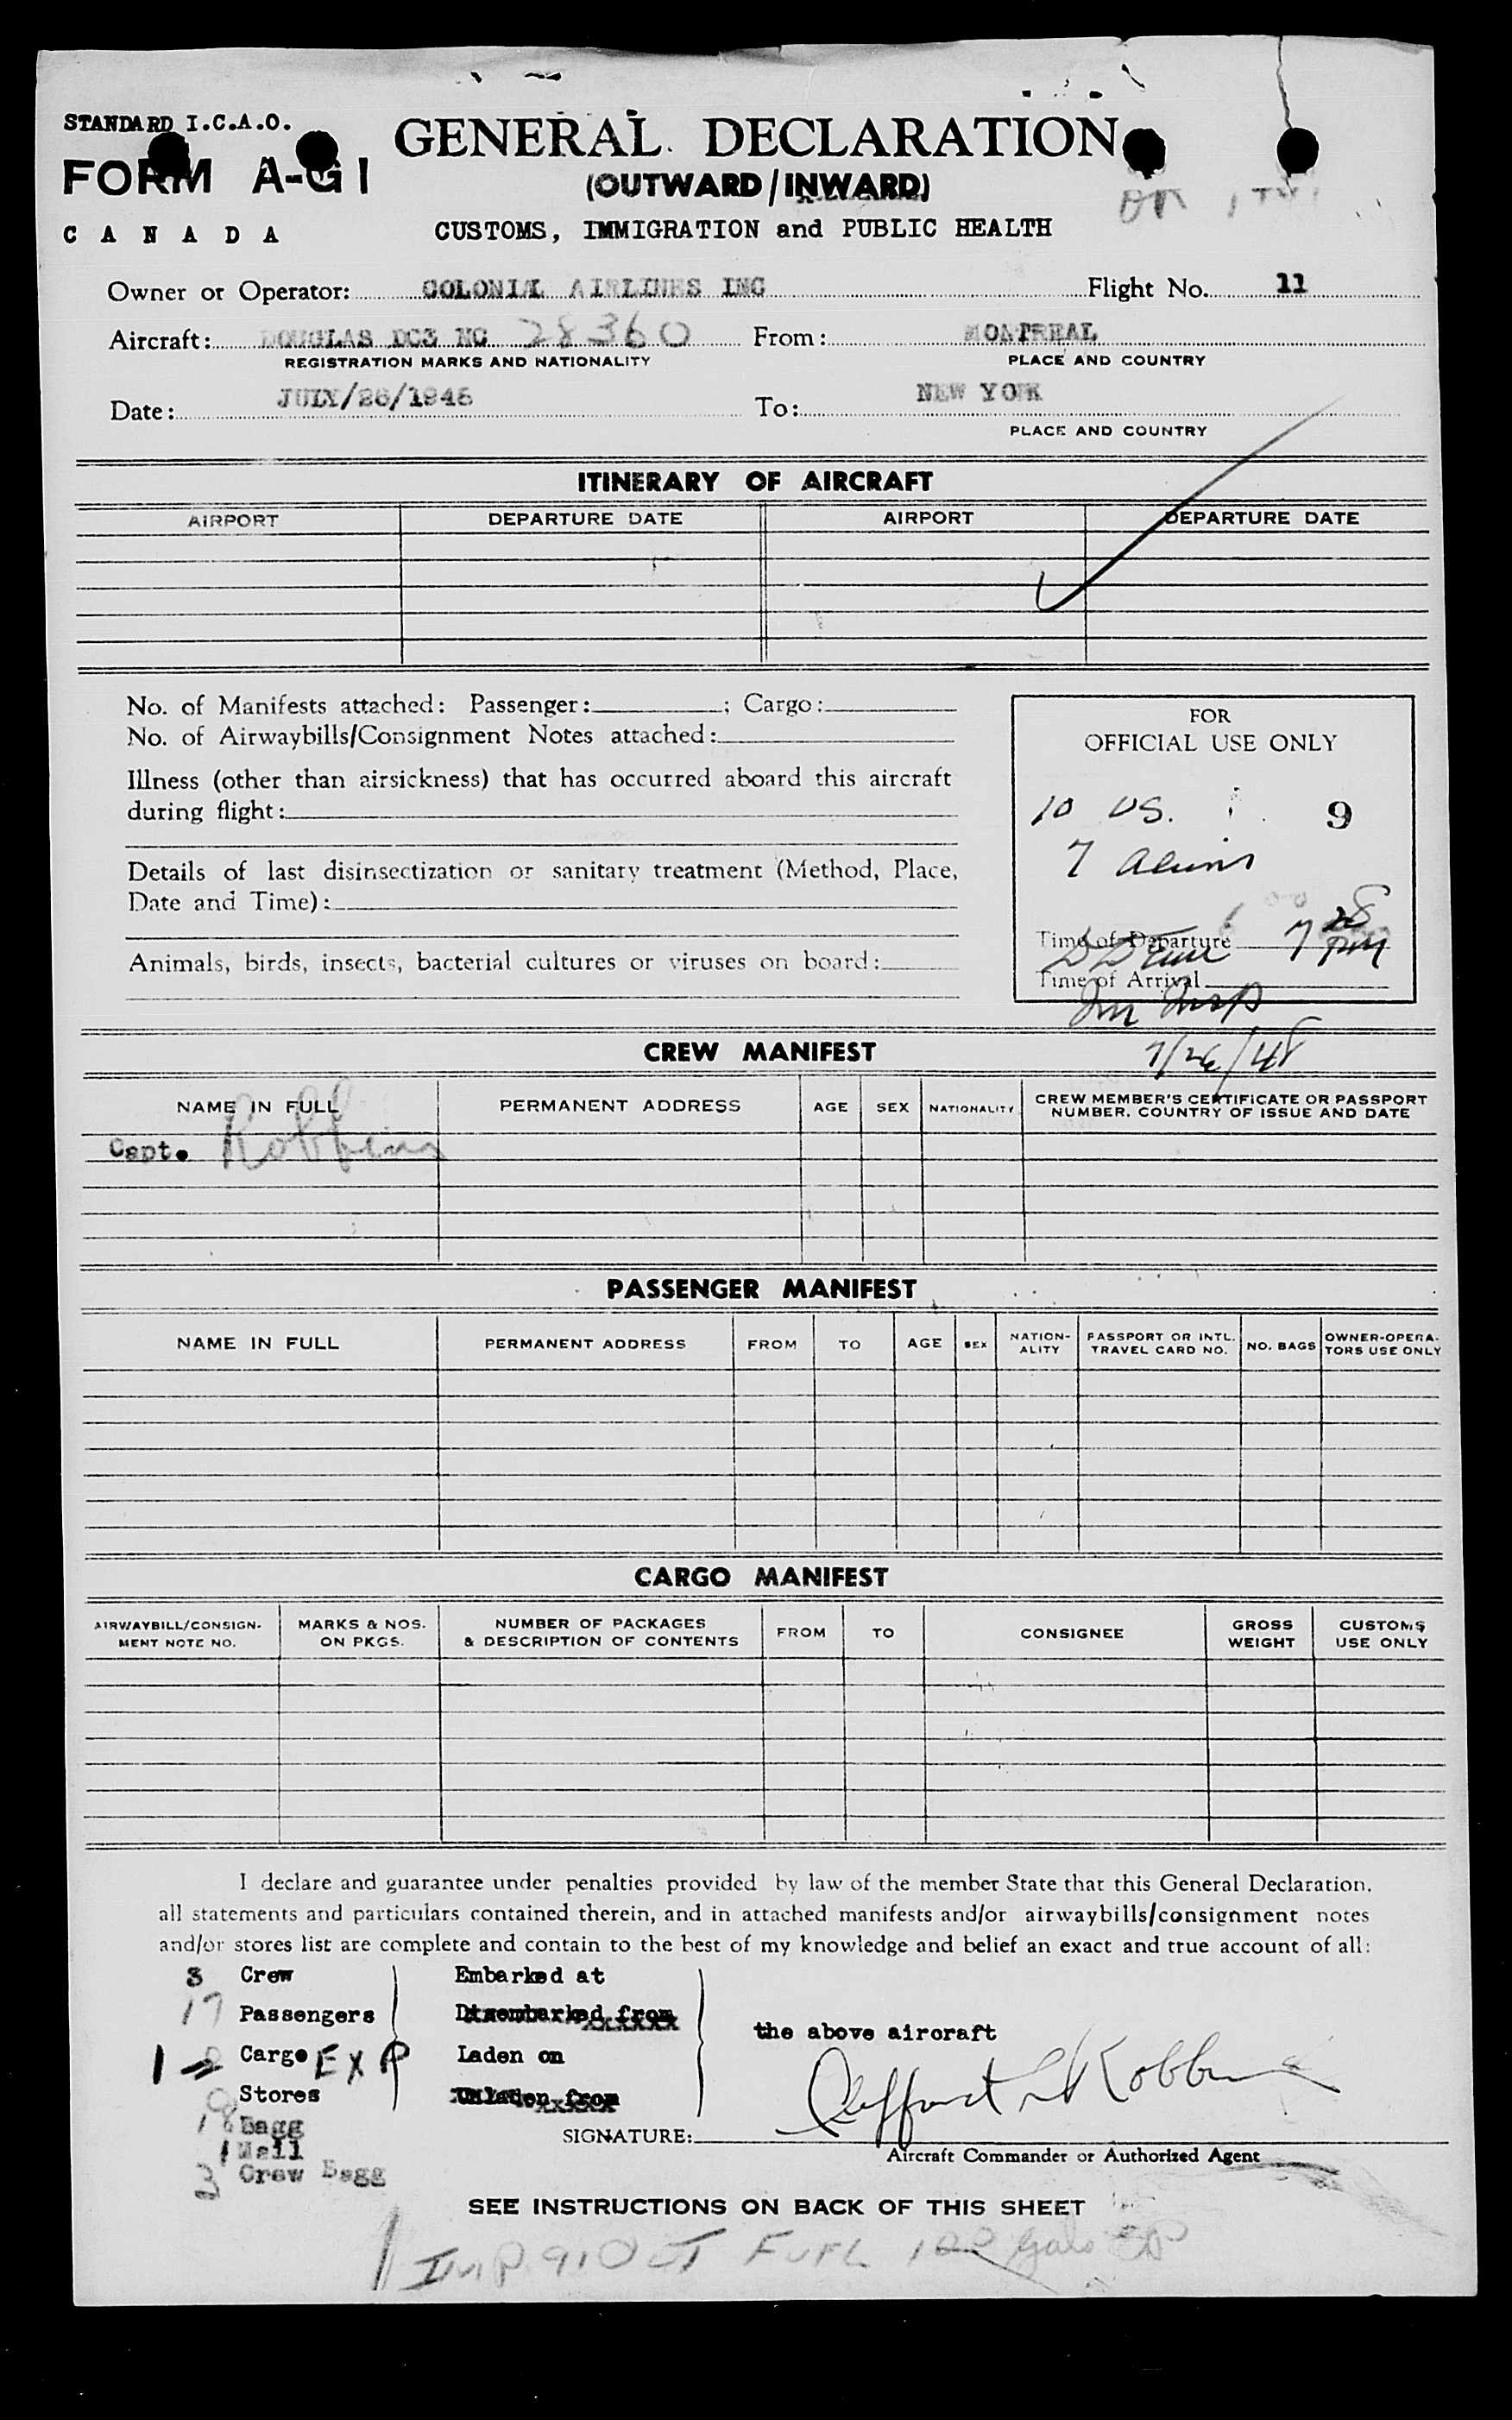 STANDARD I.C.A.O.
FORM A-G1
CANADA
GENERAL DECLARATION
(OUTWARD/INWARD)
CUSTOMS, IMMIGRATION and PUBLIC HEALTH
Owner or Operator: COLONIAL AIRLINES INC Flight No. 11
Aircraft: DOUGLAS DC3 NC 28360 From: MONTREAL
REGISTRATION MARKS AND NATIONALITY PLACE AND COUNTRY
Date: JULY/26/1948 To: NEW YORK
PLACE AND COUNTRY
ITINERARY OF AIRCRAFT
AIRPORT DEPARTURE DATE AIRPORT DEPARTURE DATE
No. of Manifests attached: Passenger: ; Cargo:
No. of Airwaybills/Consignment Notes attached:
Illness (other than airsickness) that has occurred aboard this aircraft
during flight:
Details of last disinsectization or sanitary treatment (Method, Place,
Date and Time):
Animals, birds, insects, bacterial cultures or viruses on board:
FOR
OFFICIAL USE ONLY
10 US. 9
7 aliens
Time of Departure 7 28 PM
Time of Arrival
Im Insp
7/26/48
CREW MANIFEST
NAME IN FULL PERMANENT ADDRESS AGE SEX NATIONALITY CREW MEMBER'S CERTIFICATE OR PASSPORT NUMBER. COUNTRY OF ISSUE AND DATE
Capt. Robbins
PASSENGER MANIFEST
NAME IN FULL PERMANENT ADDRESS FROM TO AGE SEX NATION-ALITY PASSPORT OR INTL. TRAVEL CARD NO. NO. BAGS OWNER-OPERA-TORS USE ONLY
CARGO MANIFEST
AIRWAYBILL/CONSIGN-MENT NOTE NO. MARKS & NOS. ON PKGS. NUMBER OF PACKAGES & DESCRIPTION OF CONTENTS FROM TO CONSIGNEE GROSS WEIGHT CUSTOMS USE ONLY
I declare and guarantee under penalties provided by law of the member State that this General Declaration,
all statements and particulars contained therein, and in attached manifests and/or airwaybills/consignment notes
and/or stores list are complete and contain to the best of my knowledge and belief an exact and true account of all:
3 Crew Embarked at
17 Passengers Disembarked from
the above aircraft
1 Cargo EXP Laden on
Stores Unladen from
18 Bagg
1 Mail
3 Crew Bagg
SIGNATURE: Clifford Robbins
Aircraft Commander or Authorized Agent
SEE INSTRUCTIONS ON BACK OF THIS SHEET
IMP 910 FUEL 100 gals